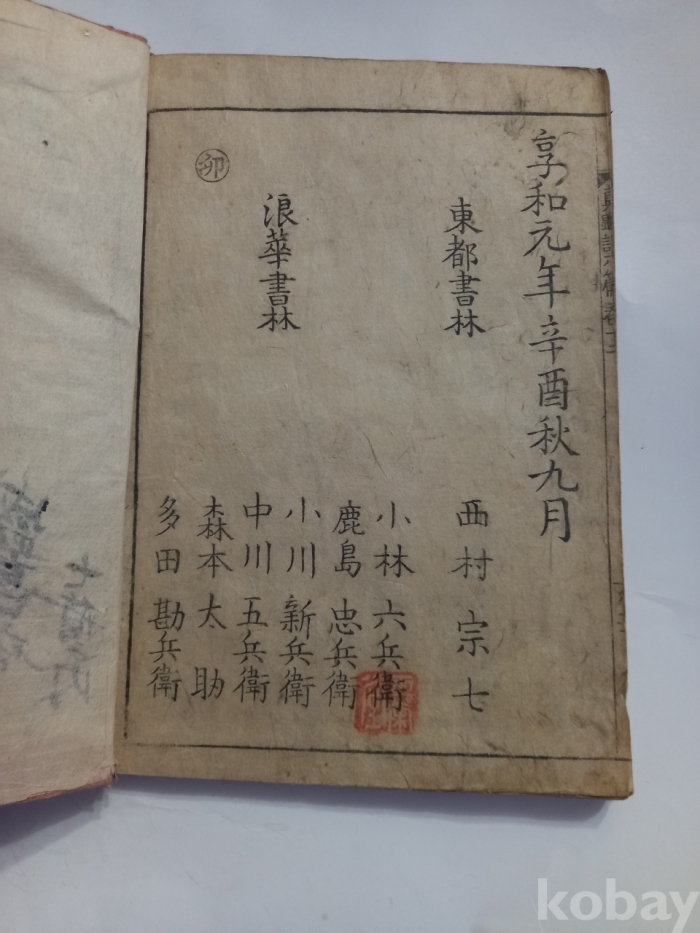 享和元年辛酉秋九月
東都書林
西村宗七
浪華書林
小林六兵衛
鹿島忠兵衛
小川新兵衛
中川五兵衛
森本太助
多田勘兵衛
卯
kobay